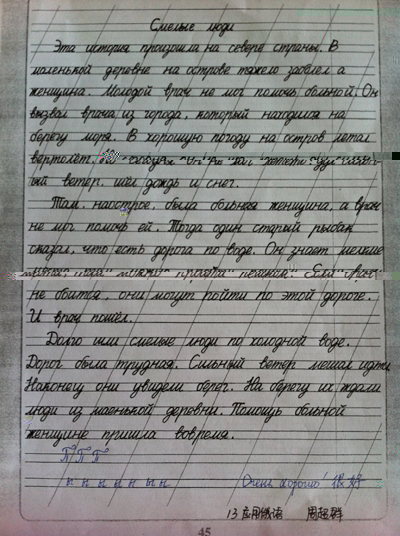 Смелые люди
Эта история произошла на севере страны. В
маленькой деревне на острове тяжело заболела
женщина. Молодой врач не мог помочь больной. Он
вызвал врача из города, который находился на
берегу моря. В хорошую погоду на остров летал
вертолёт.
ый ветер. шёл дождь и снег.
Там, наострое, была больная женщина, а врач
не мог помочь ей. Тогда один старый рыбак
сказал, что есть дорога по воде. Он знает мелкие
не боится, они могут пойти по этой дороге.
И врач пошёл.
Долго шли смелые люди по холодной воде.
Дорог была трудная. Сильный ветер мешал идти.
Наконец они увидели берег. На берегу их ждали
люди из маенькой деревни. Помощь больной
женщине пришла вовремя.
П П П
ы ы ы ы ы ы ы Очень хорошо! 很好
13 应用俄语 周超群
45